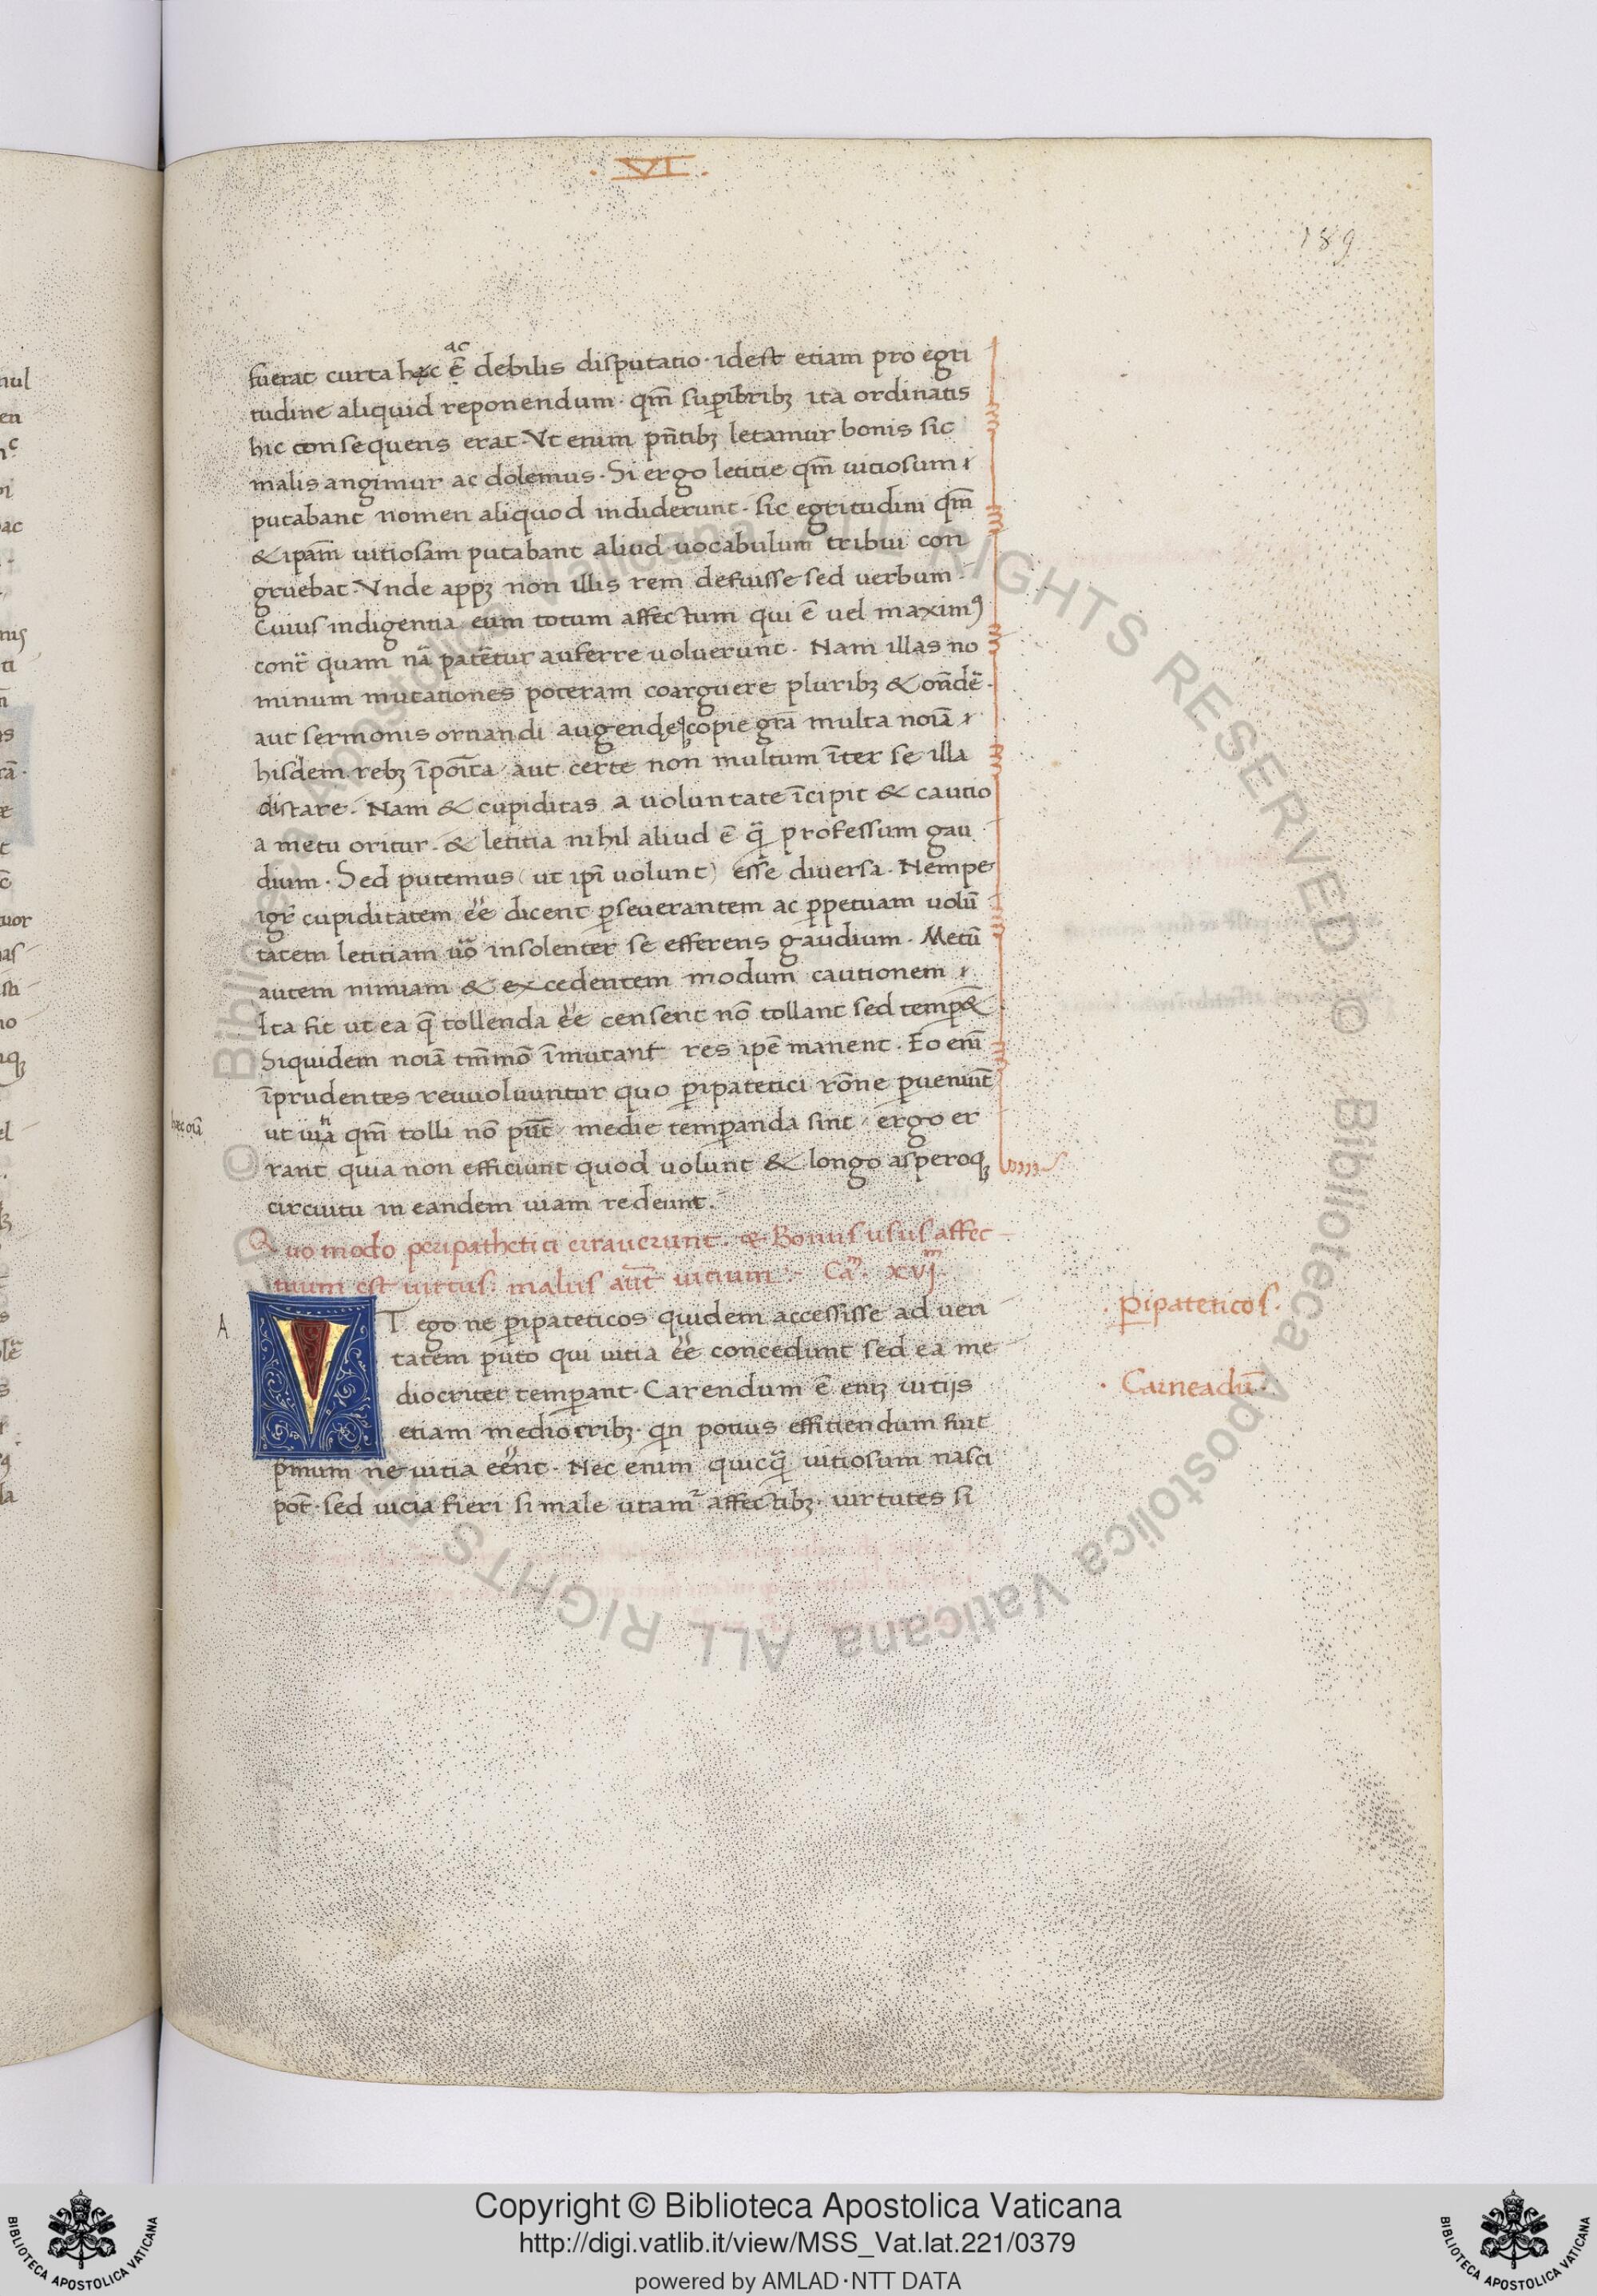 .VI.
189
fuerat curta hęc ē ac debilis disputatio · idest etiam pro egri
tudine aliquid reponendum · qm̄ suꝑiọ̄ribꝫ ita ordinatis
hic consequens erat · Vt enim pn̄tibꝫ letamur bonis sic
malis angimur ac dolemus · Si ergo letitie qm̄ uitiosum
putabant nomen aliquod indiderunt · sic egritudini qm̄
& ipam̄ uitiosam putabant aliud uocabulum tribui con
gruebat · Vnde appꝫ non illis rem defuisse sed uerbum ·
Cuius indigentia eum totum affectum qui ē uel maximꝰ
cont̄ quam nā patētur auferre uoluerunt · Nam illas no
minum mutationes poteram coarguere pluribꝫ & on̄dē ·
aut sermonis ornandi augendęꝗ copie grā multa noīā
hisdem rebꝫ īpoīta aut certe non multum īter se illa
distare · Nam & cupiditas a uoluntate īcipit & cautio
a metu oritur · & letitia nihil aliud ē ꝗ̄ professum gau
dium · Sed putemus (ut ipī uolunt) esse diuersa · Nempe
igr̄ cupiditatem eē dicent ꝑseuerantem ac ꝑpetuam uolū
tatem letitiam uō insolenter se efferens gaudium · Metū
autem nimiam & excedentem modum cautionem
Ita fit ut ea q̄ tollenda eē censent nō tollant sed temꝑ&
Siquidem noīā tm̄mō īmutant res ipē manent · Eo enī
īprudentes reuuoluuntur quo ꝑipatetici rōne ꝑueniūt
ut uiᵗa qm̄ tolli nō pn̄t medie temꝑanda sint ergo er
rant quia non efficiunt quod uolunt & longo asperoqꝫ
circuitu in eandem uiam redeunt ·
Quo modo peripathetici errauerunt · & Bonus usus affec
tuum est uirtus · malus aūt uitium · Ca᷑ · xvjᵐ
A
VT ego ne ꝑipateticos quidem accessisse ad ueri
tatem puto qui uitia eē concedunt sed ea me
diocriter temꝑant · Carendum ē enī uitijs
etiam mediocribꝫ · qn potius effitiendum fuit
pmum ne uitia eēnt · Nec enim quicꝗ̄ uitiosum nasci
pōt · sed uicia fieri si male utamʳ affectibꝫ · uirtutes si
· ꝑipateticos ·
· Carneadū ·
Copyright © Biblioteca Apostolica Vaticana
http://digi.vatlib.it/view/MSS_Vat.lat.221/0379
powered by AMLAD·NTT DATA
BIBLIOTECA APOSTOLICA VATICANA
BIBLIOTECA APOSTOLICA VATICANA